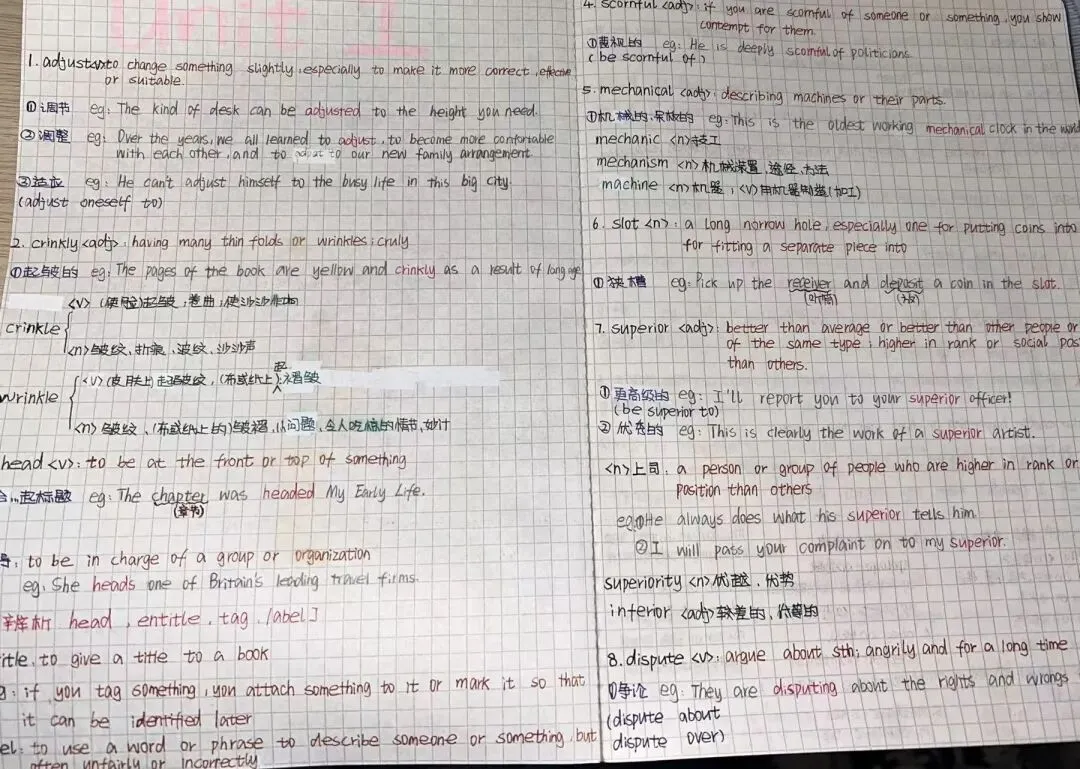 Unit 1
1. adjust<v>to change something slightly, especially to make it more correct, effective
or suitable.
①调节 eg: The kind of desk can be adjusted to the height you need.
②调整 eg: Over the years, we all learned to adjust, to become more comfortable
with each other, and to adjust to our new family arrangement.
③适应 eg: He can't adjust himself to the busy life in this big city.
(adjust oneself to)
2. crinkly <adj>: having many thin folds or wrinkles; cruly
①起皱的 eg: The pages of the book are yellow and crinkly as a result of long age
crinkle
<v> (使脸)起皱;卷曲;使沙沙作响
<n>皱纹、折痕、波纹、沙沙声
wrinkle
<v>(皮肤上)起皱纹,(布或纸上)起褶皱
<n>皱纹、(布或纸上的)皱褶、小问题、令人吃惊的情节、妙计
head <v>: to be at the front or top of something
起标题 eg: The chapter was headed My Early Life.
(章节)
to be in charge of a group or organization
eg: She heads one of Britain's leading travel firms.
辨析 head, entitle, tag, label]
title, to give a title to a book
g: if you tag something, you attach something to it or mark it so that
it can be identified later
el: to use a word or phrase to describe someone or something, but
often unfairly or incorrectly
4. scornful <adj>: if you are scornful of someone or something, you show
contempt for them.
①蔑视的 eg: He is deeply scornful of politicians.
(be scornful of)
5. mechanical <adj>: describing machines or their parts.
①机械的、呆板的 eg: This is the oldest working mechanical clock in the world
mechanic <n>技工
mechanism <n>机械装置、途径、方法
machine <n>机器, <v>用机器制造(加工)
6. slot <n>: a long norrow hole, especially one for putting coins into
for fitting a separate piece into
①狭槽 eg: Pick up the receiver and deposit a coin in the slot.
(听筒)
7. superior <adj>: better than average or better than other people or
of the same type; higher in rank or social pos
than others.
①更高级的 eg: I'll report you to your superior officer!
(be superior to)
②优秀的 eg: This is clearly the work of a superior artist.
<n>上司: a person or group of people who are higher in rank or
position than others
eg:①He always does what his superior tells him
②I will pass your complaint on to my superior.
superiority <n>优越、优势
inferior <adj>较差的、低等的
8. dispute <v>: argue about sth; angrily and for a long time
①争论 eg: They are disputing about the rights and wrongs
(dispute about
dispute over)